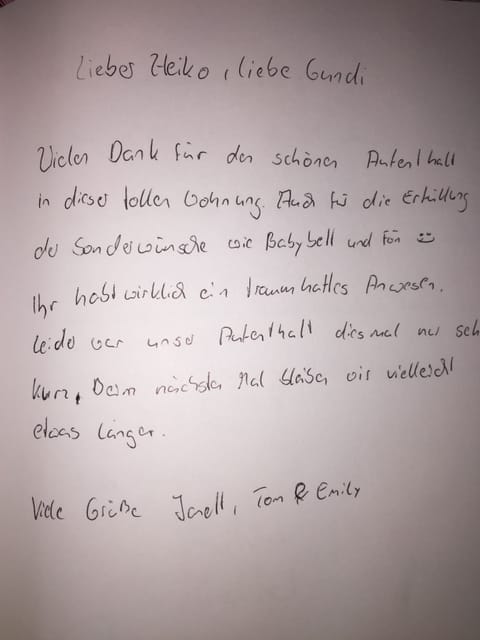 Lieber Heiko, liebe Gundi
Vielen Dank für den schönen Aufenthalt
in dieser tollen Wohnung. Auch für die Erfüllung
der Sonderwünsche wie Babybell und Fön ☺
Ihr habt wirklich ein traumhaftes Anwesen.
Leider war unser Aufenthalt diesmal nur seh
kurz, Beim nächsten Mal bleiben wir vielleicht
etwas länger.
Viele Grüße Tom & Emily